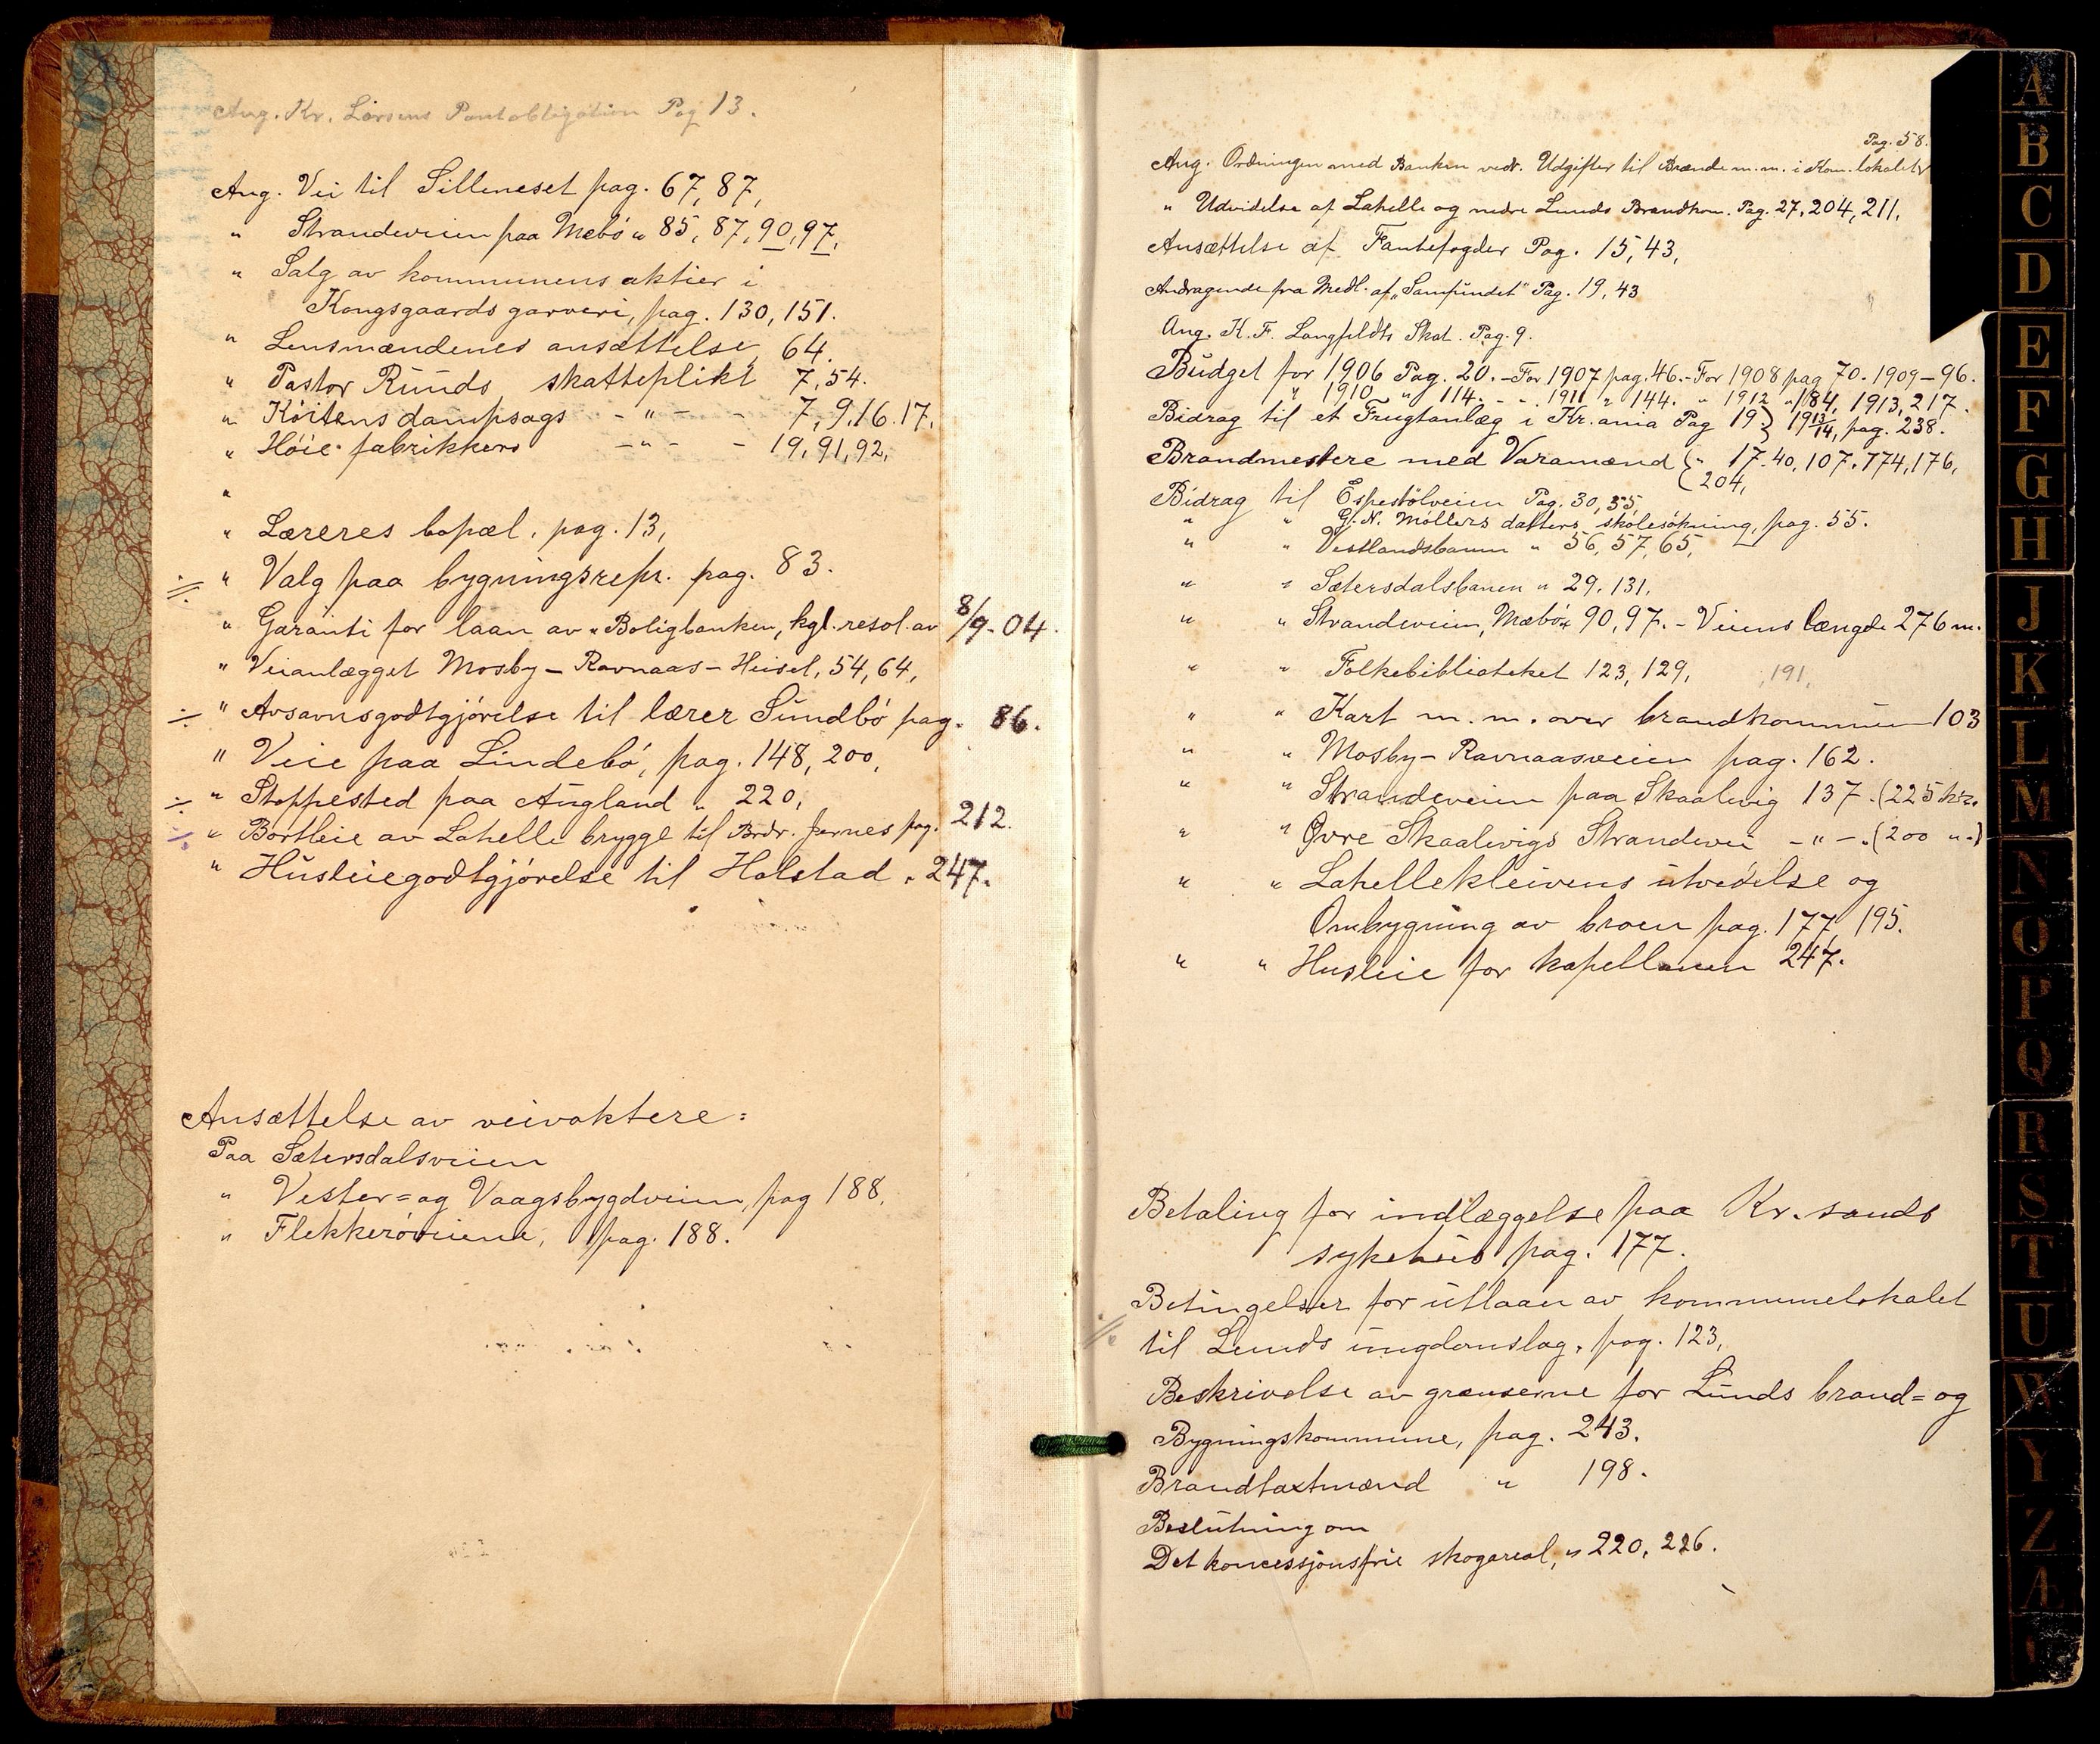 Ang. Kr. Larsens Pantobligation Pag 13.
Ang. Vei til Silleneset pag. 67, 87,
" Strandeveien paa Mebö " 85, 87, 90, 97,
" Salg av kommunens aktier i
Kongsgaards garveri, pag. 130, 151.
" Lensmændenes ansættelse, 64.
" Pastor Runds skatteplikt 7, 54.
" Köitens dampsags - " - - 7, 9, 16. 17,
" Höie fabrikkers - " - - 19, 91, 92,
"
" Læreres bopæl, pag. 13,
÷ " Valg paa bygningsrepr. pag. 83.
" Garanti for laan av "Boligbanken, kgl. resol. av 8/9-04.
" Veianlægget Mosby - Ravnaas - Heisel, 54, 64,
÷ " Avsavnsgodtgjörelse til lærer Sundbö pag. 86.
" Veie paa Lindebö, pag. 148, 200,
÷ " Stoppested paa Augland " 220,
÷ " Bortleie av Lahelle brygge til Brdr. Jernes pag. 212.
" Husleiegodtgjörelse til Holstad " 247.
Ansættelse av veivoktere:
Paa Sætersdalsveien
" Vester= og Vaagsbygdveien, pag 188.
" Flekkeröveiene, pag. 188.
Pag. 58.
Ang. Ordningen med Banken vedr. Udgifter til Brænde m.m. i Kom. lokalet
" Udvidelse af Lahelle og nedre Lunds Brandkom. Pag. 27, 204, 211,
Ansættelse af Fantefogder Pag. 15, 43,
Andragende fra Medl. af "Samfundet" Pag. 19, 43
Ang. K. F. Langfeldts Skat. Pag. 9.
Budget for 1906 Pag. 20. - For 1907 pag. 46. - For 1908 pag 70. 1909 - 96.
" 1910 " 114. - " 1911 " 144. " 1912 " 184, 1913, 217.
Bidrag til et Frugtanlæg i Kr.ania Pag 19 } 1913/14, pag. 238.
Brandmestere med Varamænd { " 17. 40, 107, 174, 176,
204,
Bidrag til Espestölveien Pag. 30, 35
" " G. N. Möllers datters skolesökning, pag. 55.
" " Vestlandsbanen " 56, 57, 65,
" " Sætersdalsbanen " 29, 131,
" " Strandeveien, Mæbö " 90, 97. - Veiens længde 276 m.
" " Folkebiblioteket 123, 129, 191,
" " Kart m. m. over brandkommunen 103
" " Mosby - Ravnaasveien pag. 162.
" " Strandeveien paa Skaalevig 137. (225 kr.
" " Övre Skaalevigs Strandevei - " - . (200 " -)
" " Lahellekleivens utvidelse og
Ombygning av broen pag. 177, 195.
" " Husleie for kapellanen 247.
Betaling for indlæggelse paa Kr.sands
sykehus pag. 177.
Betingelser for utlaan av kommunelokalet
til Lunds ungdomslag, pag. 123,
Beskrivelse av grænserne for Lunds brand= og
Bygningskommune, pag. 243.
Brandtaxtmænd " 198.
Beslutning om
Det koncessjonsfrie skogareal, " 220, 226.
A
B
C
D
E
F
G
H
J
K
L
M
N
O
P
Q
R
S
T
U
W
Y
Z
Æ